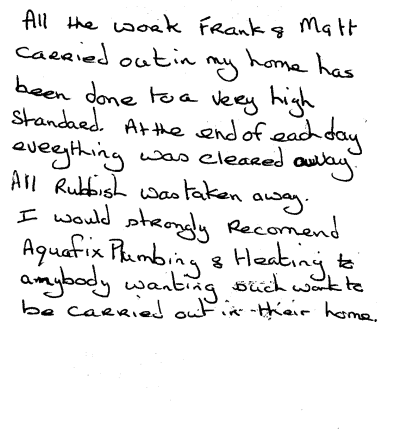 All the work Frank & Matt
carried out in my home has
been done to a very high
standard. At the end of each day
everything was cleared away.
All Rubbish was taken away.
I would strongly Recomend
Aquafix Plumbing & Heating to
anybody wanting such work to
be carried out in their home.